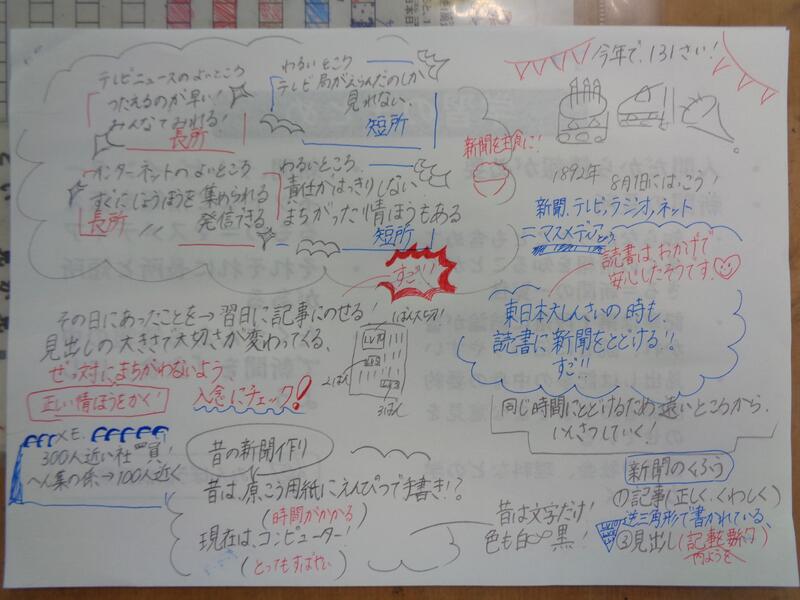 テレビニュースのよいところ
つたえるのが早い!
みんなでみれる!
長所
わるいところ
テレビ局がえらんだのしか
見れない、
短所
今年で、131さい!
インターネットのよいところ
すぐにじょうほうを集められる
発信できる
長所
わるいところ
責任がはっきりしない
まちがった情ほうもある
短所
新聞を主食に!
1892年
8月1日にはっこう!
新聞、テレビ、ラジオ、ネット
=マスメディア
読書は、おかげで
安心したそうです。
すごい!
東日本大しんさいの時も、
読書に新聞をとどける!!
すご!!
その日にあったことを→習日に記事にのせる!
見出しの大きさで大切さが変わってくる、
ぜっ対にまちがわないよう、
正しい情ほうをかく!
入念にチェック!
1ばん大切!
2ばん
3ばん
同じ時間にとどけるため遠いところから、
いんさつしていく!
メモ
300人近い社員!
へん集の係→100人近く
昔の新聞作り
昔は、原こう用紙にえんぴつで手書き!?
(時間がかかる)
現在は、コンピューター!
(とってもすばやい)
昔は文字だけ!
色も白黒!
新聞のくふう
①記事(正しく、くわしく)
逆三角形で書かれている、
②見出し(記事を要約)
内ようを